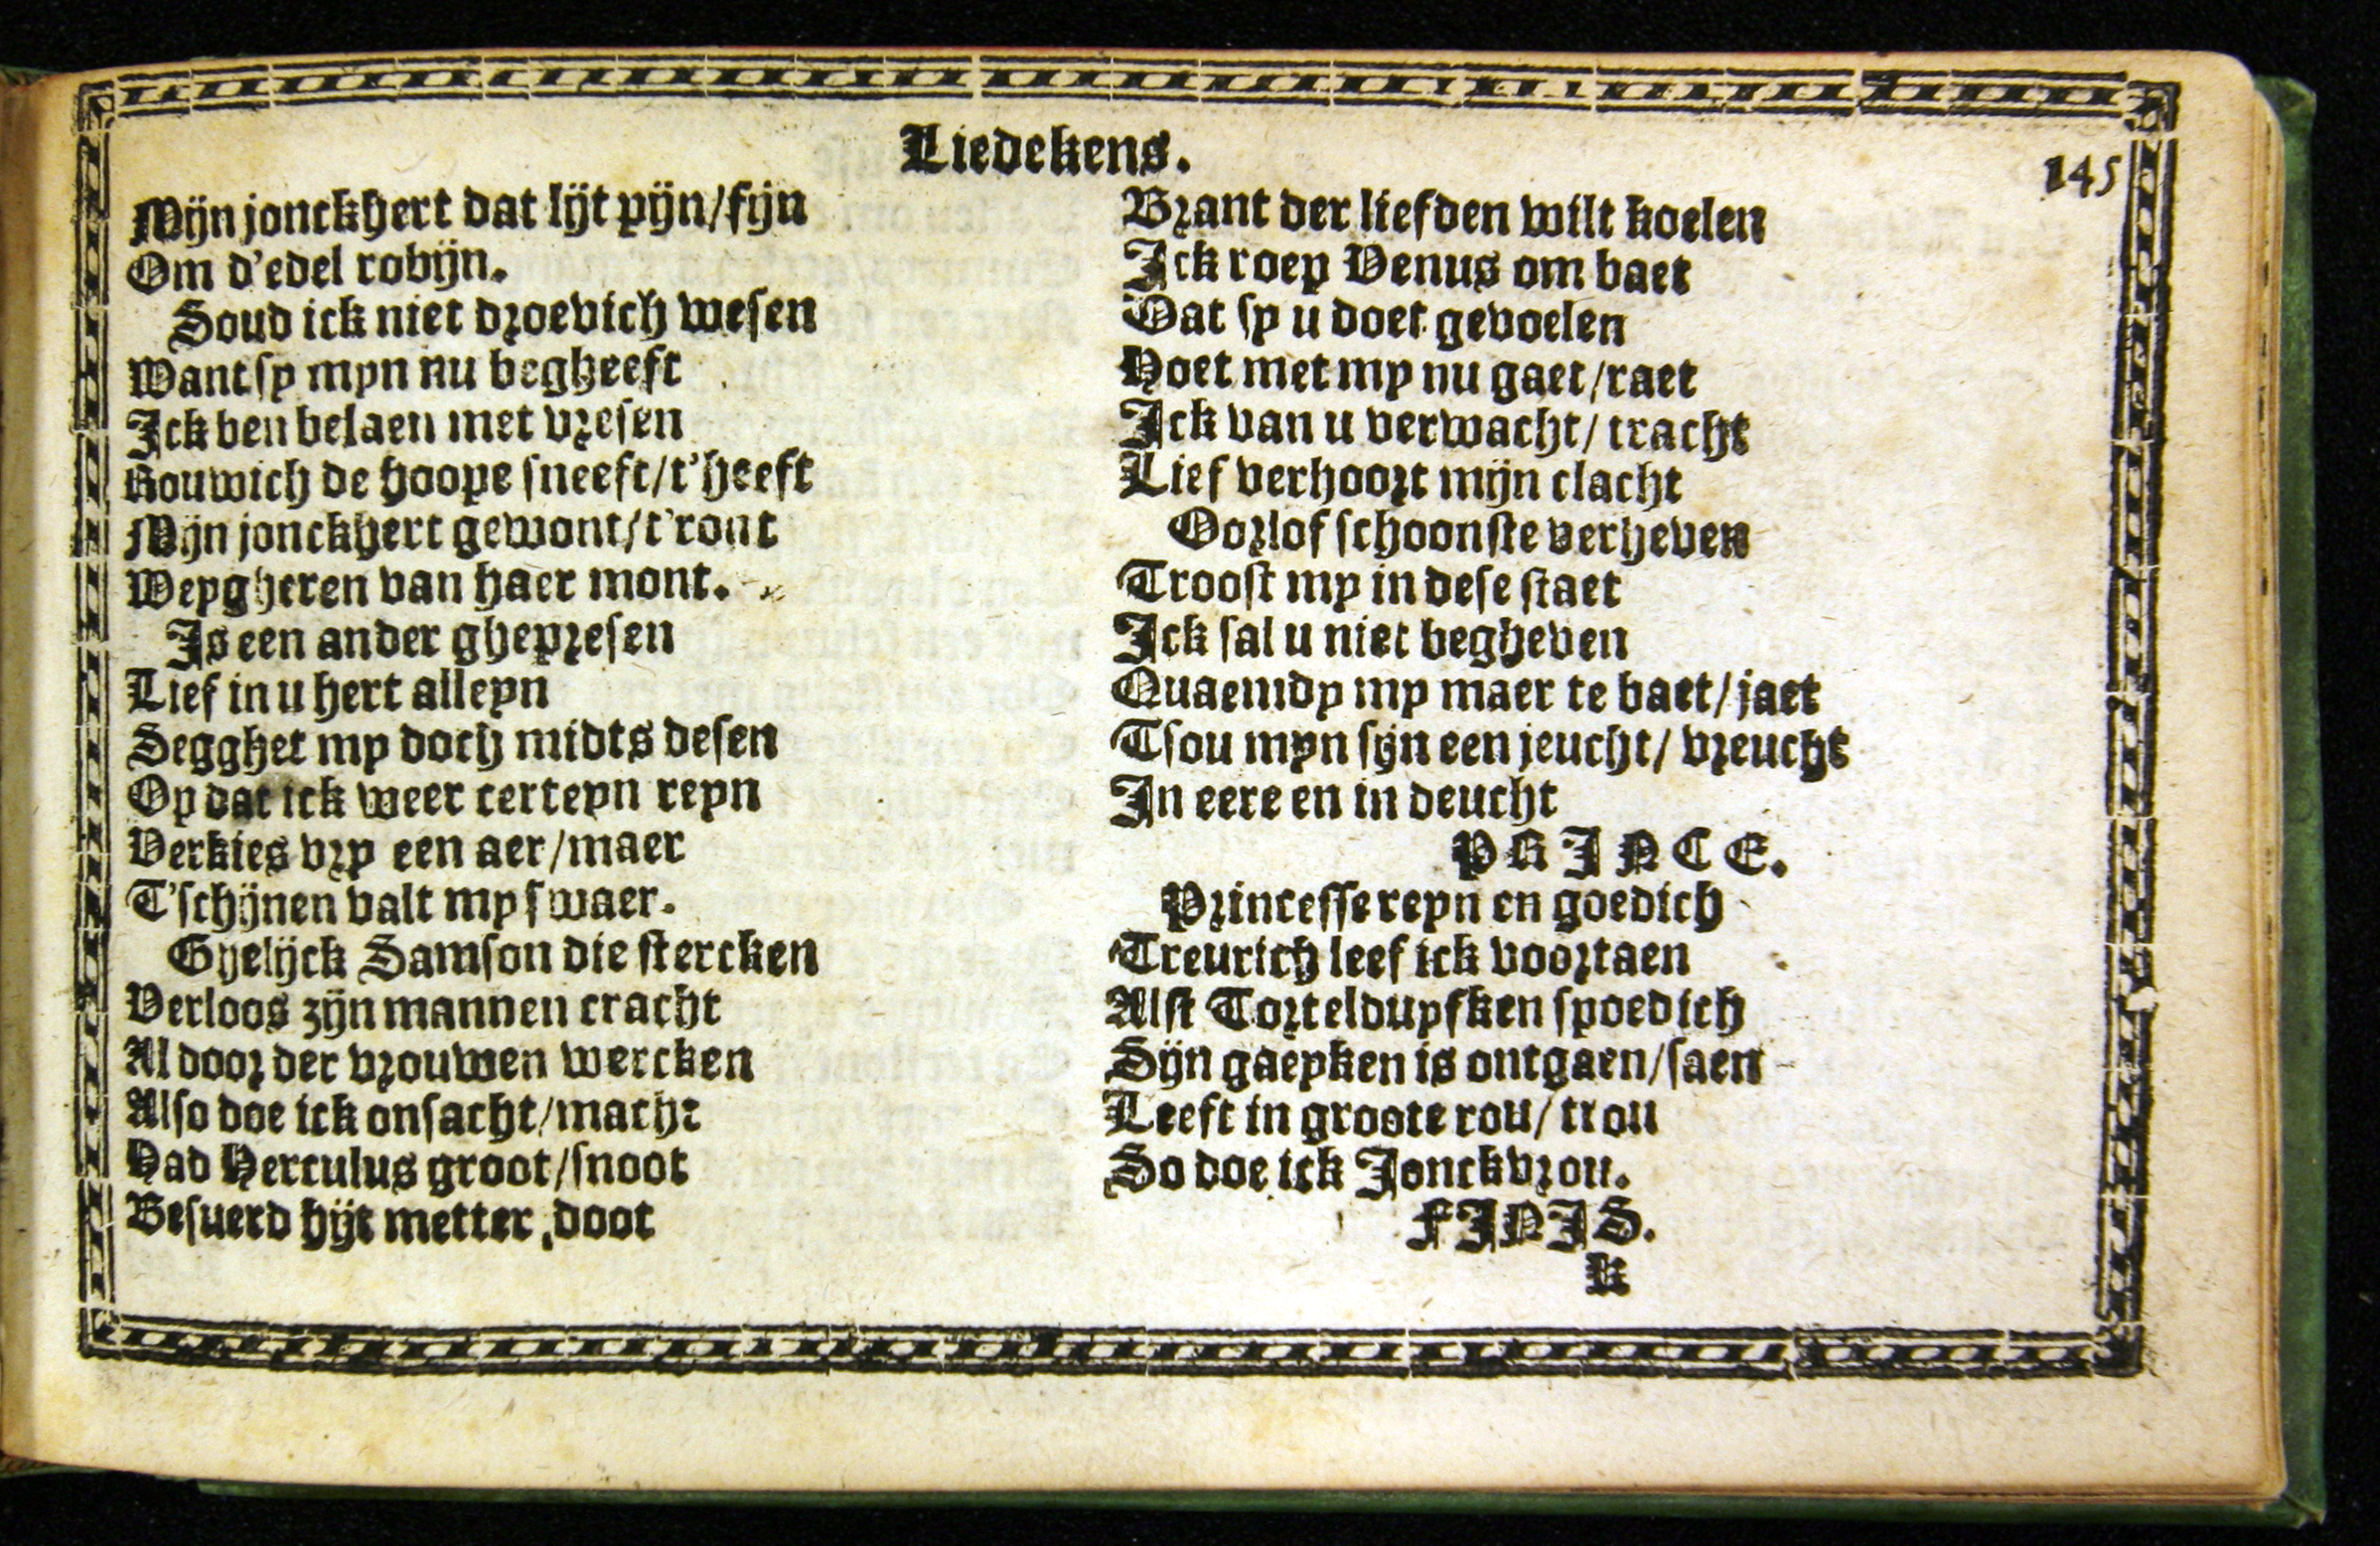 Liedekens.
145
Mijn jonckhert dat lijt pijn/fijn
Om d'edel robijn.
Soud ick niet droevich wesen
Want sy myn nu begheeft
Ick ben belaen met vresen
Rouwich de hoope sneeft/t'heeft
Mijn jonckhert gewont/t'ront
Weygheren van haer mont.
Is een ander ghepresen
Lief in u hert alleyn
Segghet my doch midts desen
Op dat ick weer certeyn reyn
Verkies vry een aer/maer
T'schijnen valt my swaer.
Ghelijck Samson die stercken
Verloos zijn mannen cracht
Al door der vrouwen wercken
Also doe ick onsacht/macht
Had Herculus groot/snoot
Besuerd hijt metter doot
Brant der liefden wilt koelen
Ick roep Venus om baet
Dat sy u doet gevoelen
Hoet met my nu gaet/raet
Ick van u verwacht/tracht
Lief verhoort mijn clacht
Oorlof schoonste verheven
Troost my in dese staet
Ick sal u niet begheven
Quaemdy my maer te baet/jaet
Tsou myn sijn een jeucht/vreucht
In eere en in deucht
PRINCE.
Princesse reyn en goedich
Treurich leef ick voortaen
Alst Tortelduyfken spoedich
Sijn gaeyken is ontgaen/saen
Leeft in groote rou/trou
So doe ick Jonckvrou.
FINIS.
K